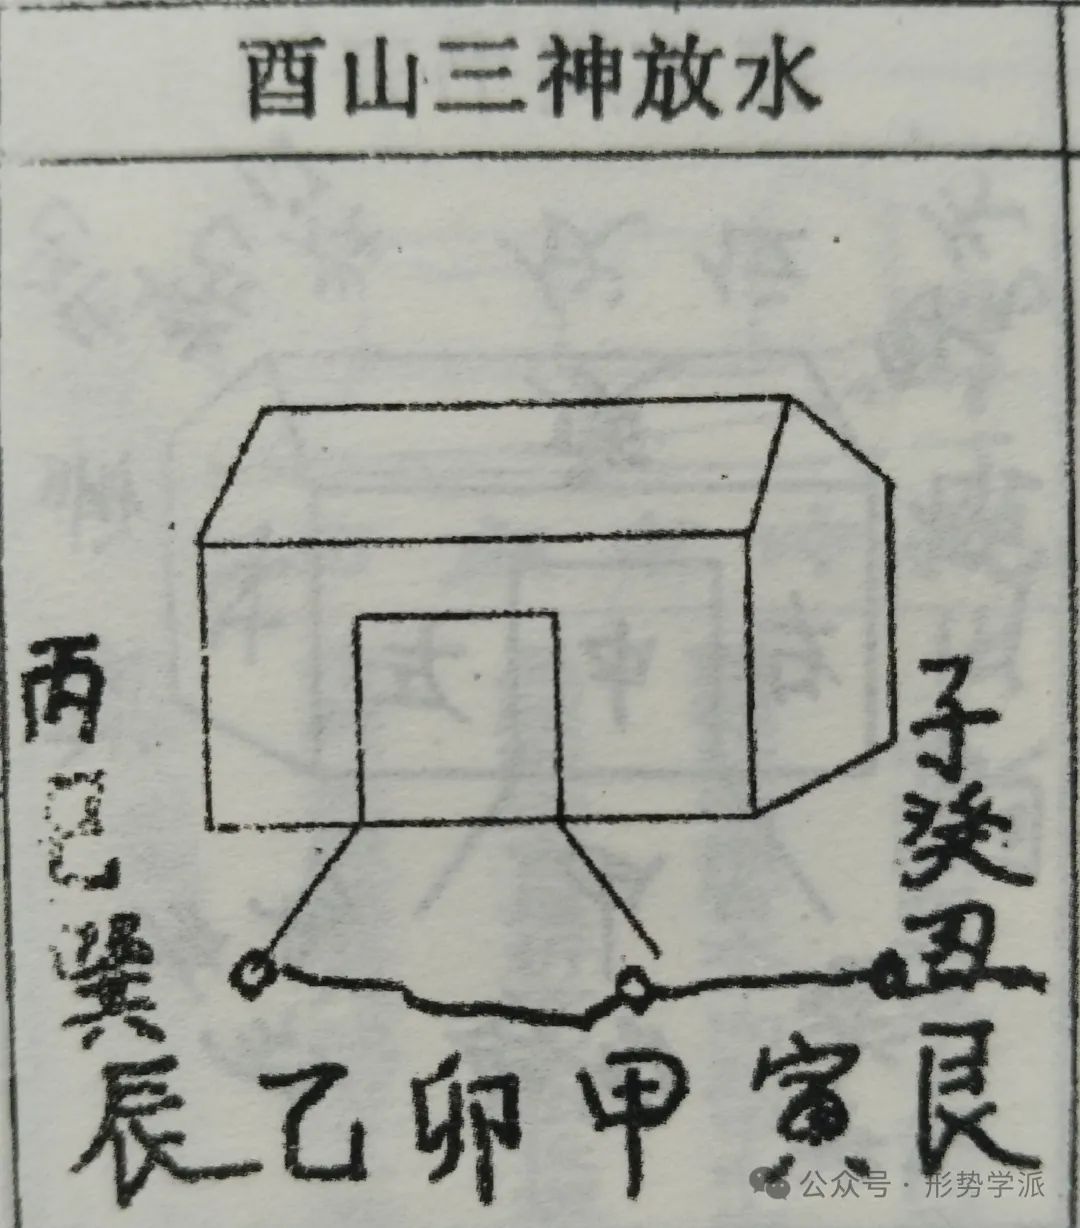 酉山三神放水
丙
巳
巽
辰乙卯甲寅艮
子
癸
丑
公众号·形势学派